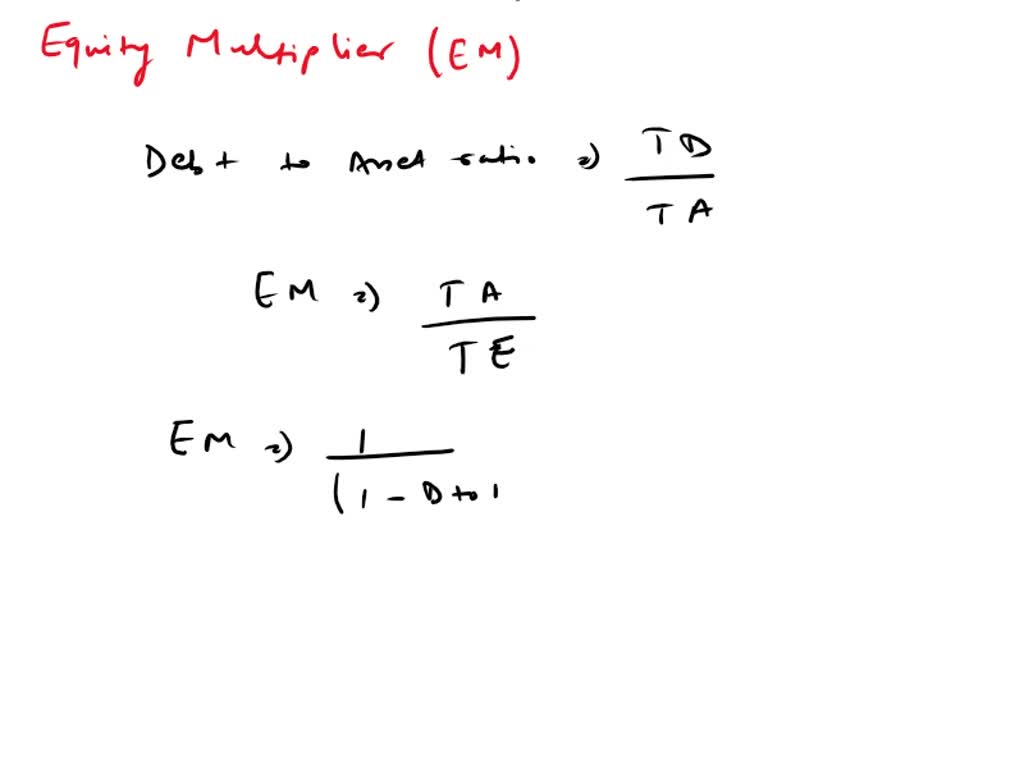 Equity Multiplier (EM)
Debt to Asset ratio => TD
TA
EM => TA
TE
EM => 1
(1 - D to 1